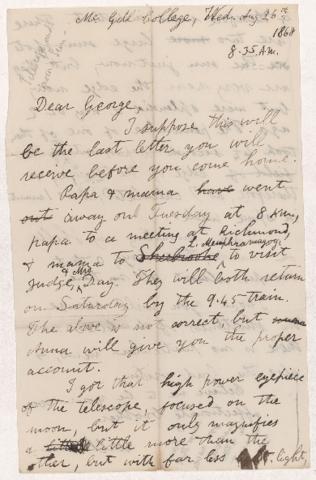 Mc Gill College, Wed. Aug 26th
1868
8.35 A.M.
Dear George,
I suppose this will
be the last letter you will
receive before you come home.
Papa & mama have went
out away on Tuesday at 8 A.M.,
papa to a meeting at Richmond,
& mama to Sherbrooke L. Memphramagog to visit
Judge & Mrs Day. They will both return
on Saturday by the 9.45 train.
The above is not correct, but
Anna will give you the proper
account.
I got that high power eyepiece
of the telescope, focused on the
moon, but it only magnifies
a little little more than the
other, but with far less light,